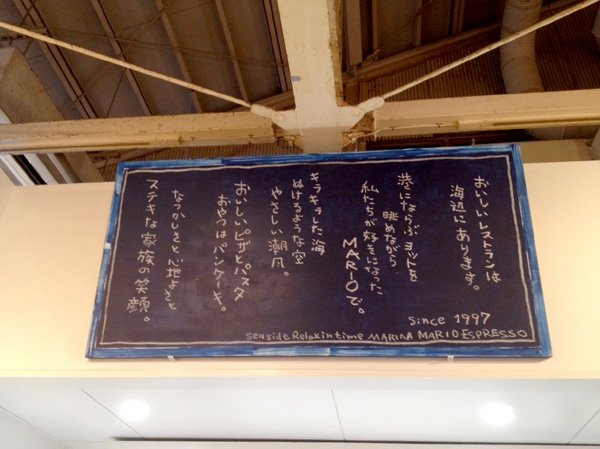 おいしいレストランは
海辺にあります。
港にならぶヨットを
眺めながら、
私たちが好きになった
MARIOで。
キラキラした海
ぬけるような空
やさしい潮風。
おいしいピザとパスタ
おやつはパンケーキ。
なつかしさと心地よさと
ステキな家族の笑顔。
Since 1997
seaside Relaxin time MARINA MARIO ESPRESSO